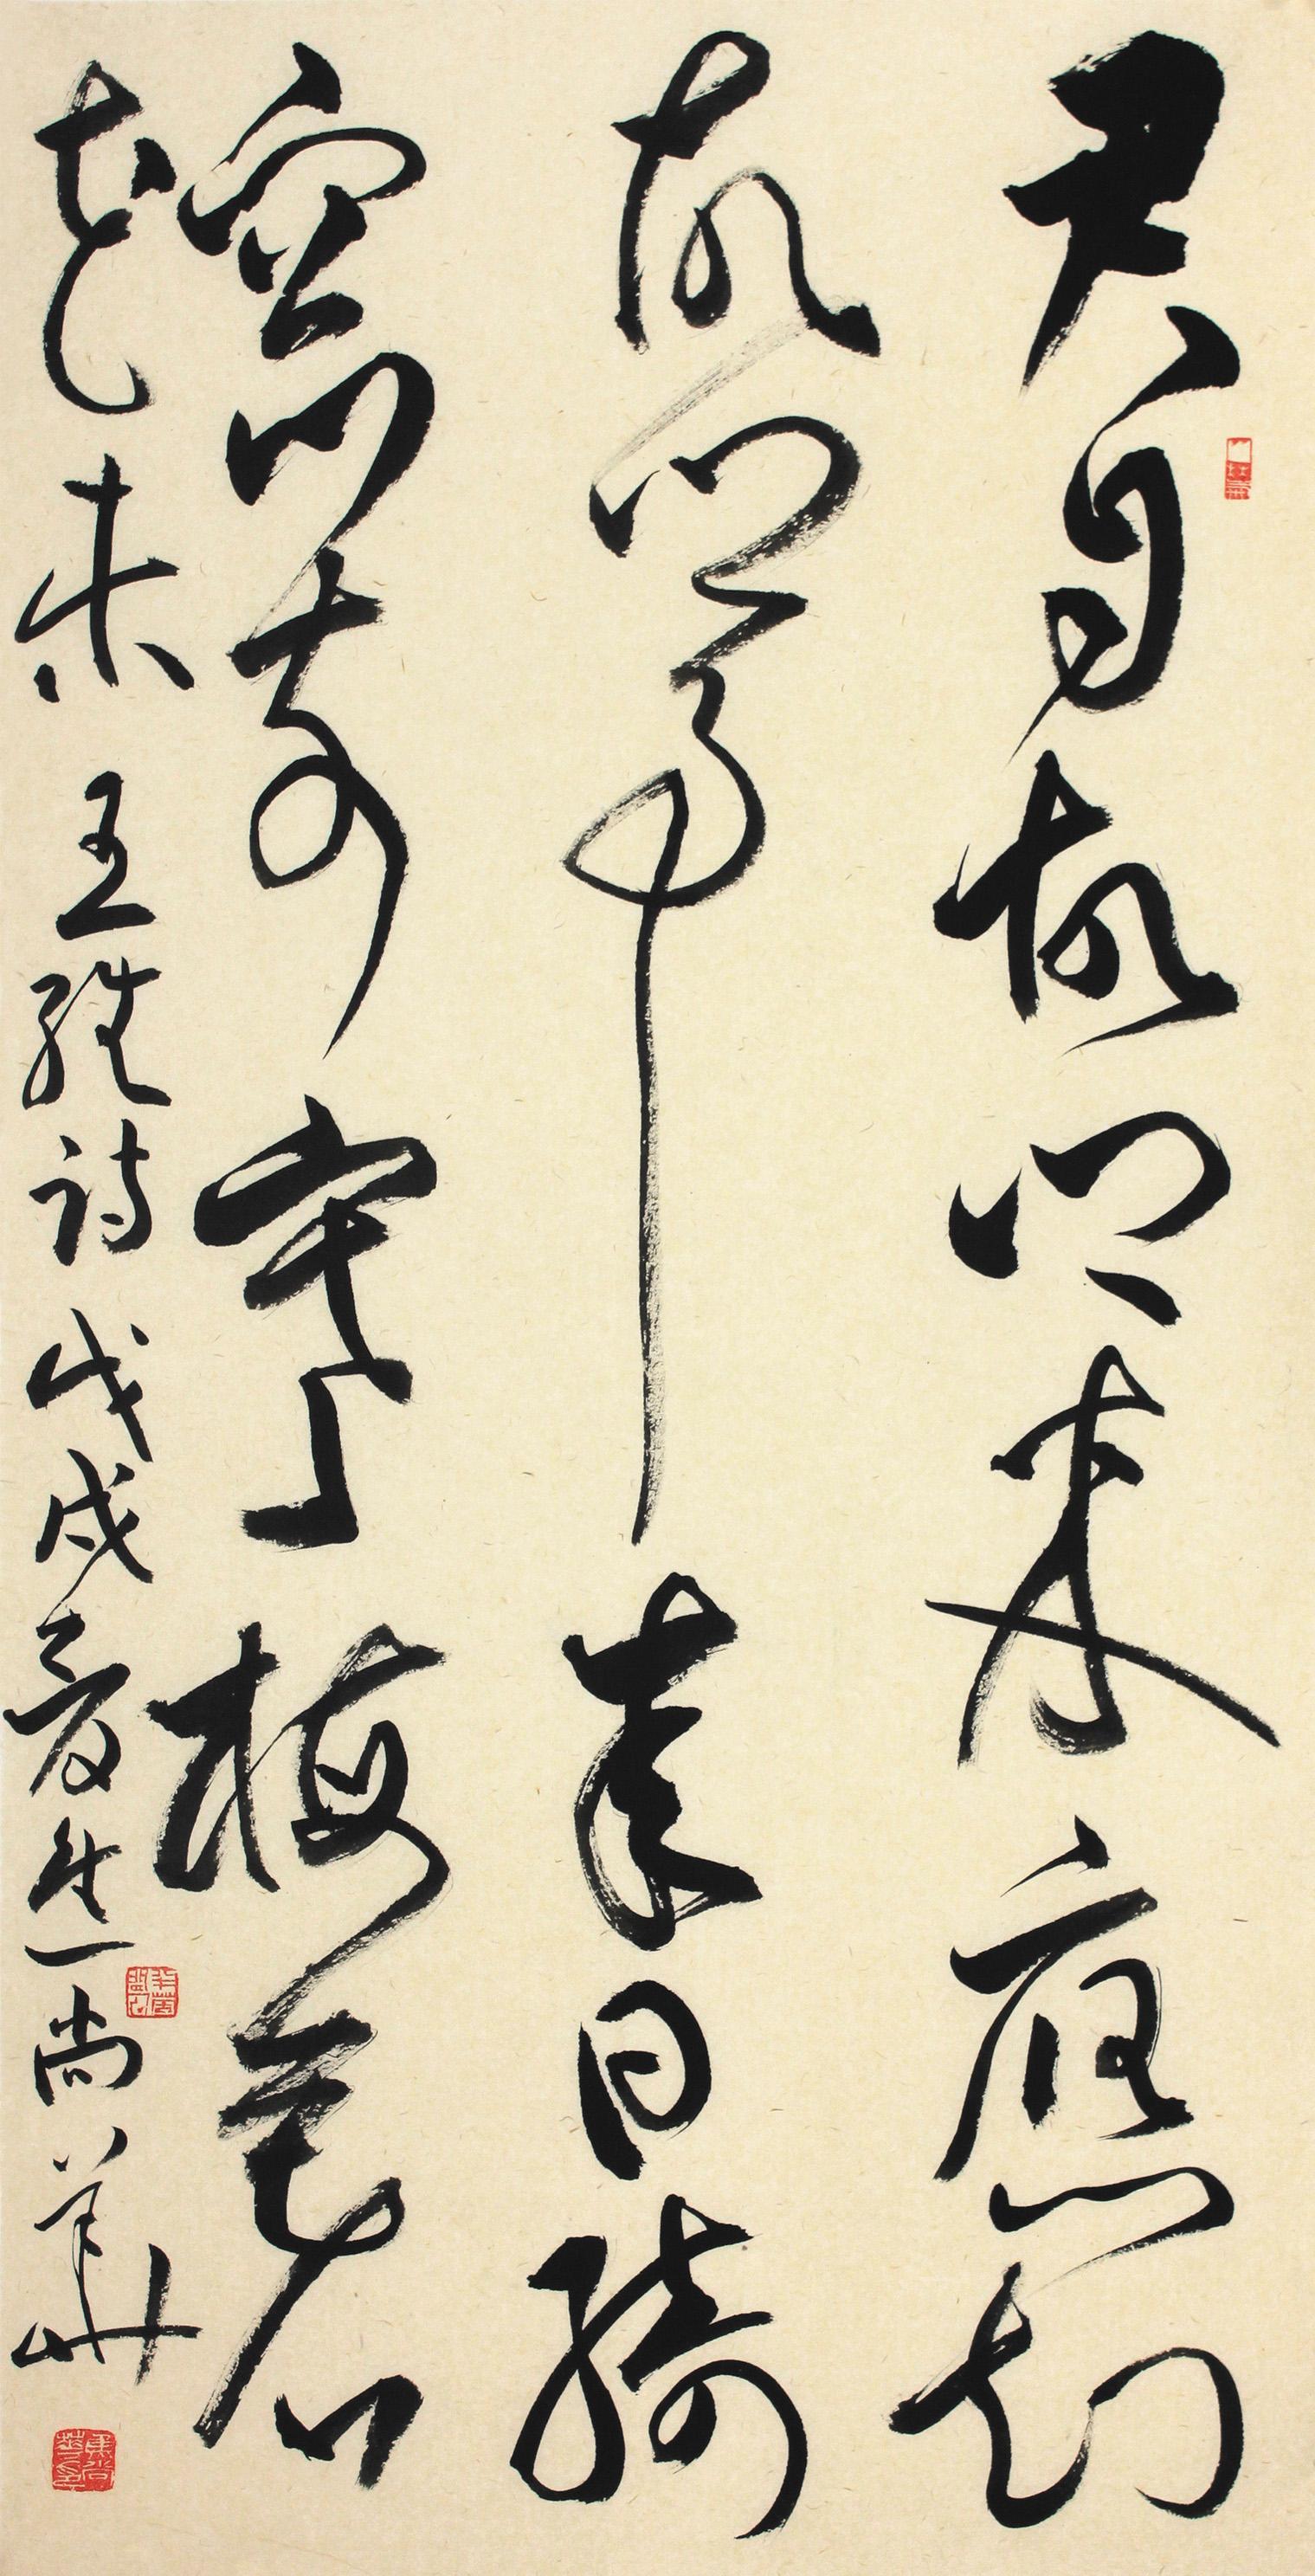 君自故鄉來應知
故鄉事來日綺
窗前寒梅著
花未 王維詩 戊戌夏生一尚華